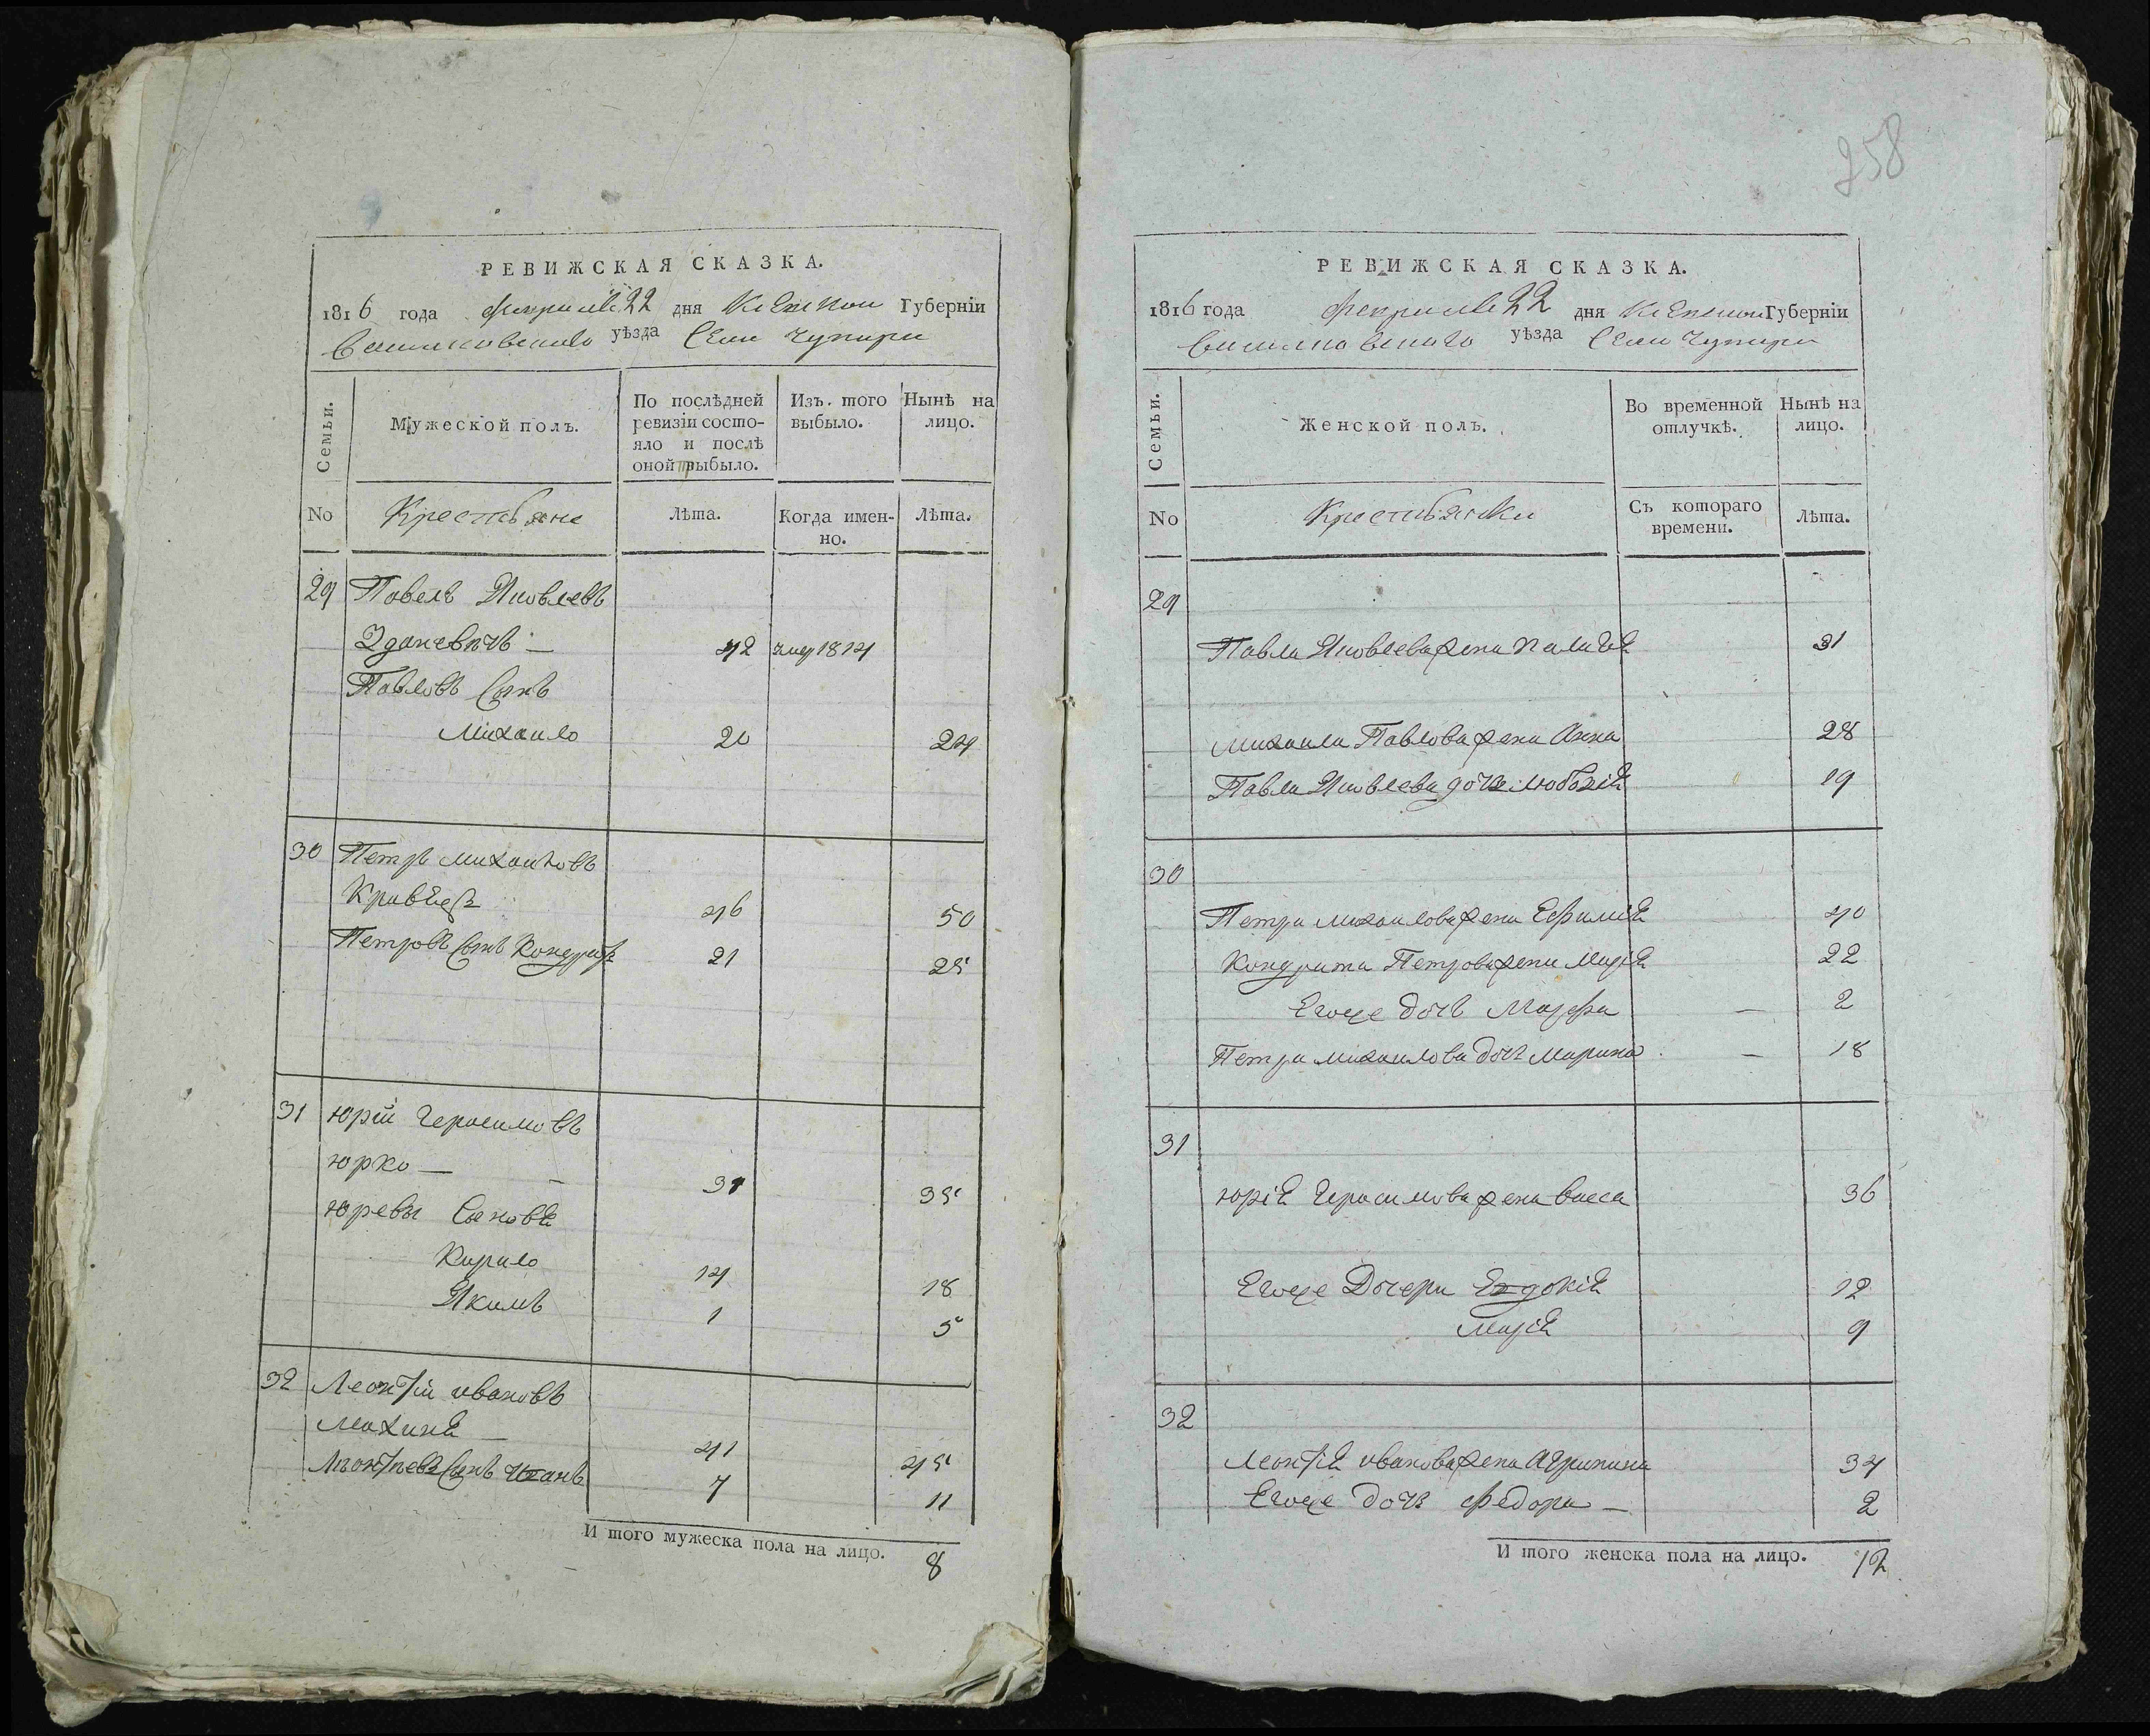 258
РЕВИЖСКАЯ СКАЗКА.
1816 года февраля 22 дня Киевской Губерніи
Васильковского уѣзда Села Чупири
Семьи.
Мужеской полъ.
По послѣдней ревизіи состо-
яло и послѣ
оной выбыло.
Изъ того
выбыло.
Нынѣ на
лицо.
No
Крестьяне
Лѣта.
Когда имен-
но.
Лѣта.
29 Павелъ Яковлевъ
Зданевичъ — 42 умер 1814
Павловъ Сынъ
Михаило 20 24
30 Петръ Михаиловъ
Кравецъ 46 50
Петровъ Сынъ Кондратъ 21 25
31 Юрій Герасимовъ
Юрко — 31 35
Юревы Сыновя
Кирило 14 18
Якимъ 1 5
32 Леонтій Ивановъ
Махиня — 41 45
Леонтьевъ Сынъ Иванъ 7 11
И того мужеска пола на лицо. 8
РЕВИЖСКАЯ СКАЗКА.
1816 года февраля 22 дня Киевской Губерніи
Васильковского уѣзда Села Чупири
Семьи.
Женской полъ.
Во временной
отлучкѣ.
Нынѣ на
лицо.
No
Крестьянки
Съ котораго
времени.
Лѣта.
29
Павла Яковлева жена 31
Михаила Павлова жена Анна 28
Павла Яковлева дочь 19
30
Петра Михаилова жена Ефимія 40
Кондрата Петрова жена Марія 22
Егоже дочь Марфа — 2
Петра Михаилова дочь Марина — 18
31
Юрія Герасимова жена Васса 36
Егоже Дочери Евдокія 12
Марія 9
32
Леонтія Иванова жена Агрипина 34
Егоже дочь Федора — 2
И того женска пола на лицо. 12